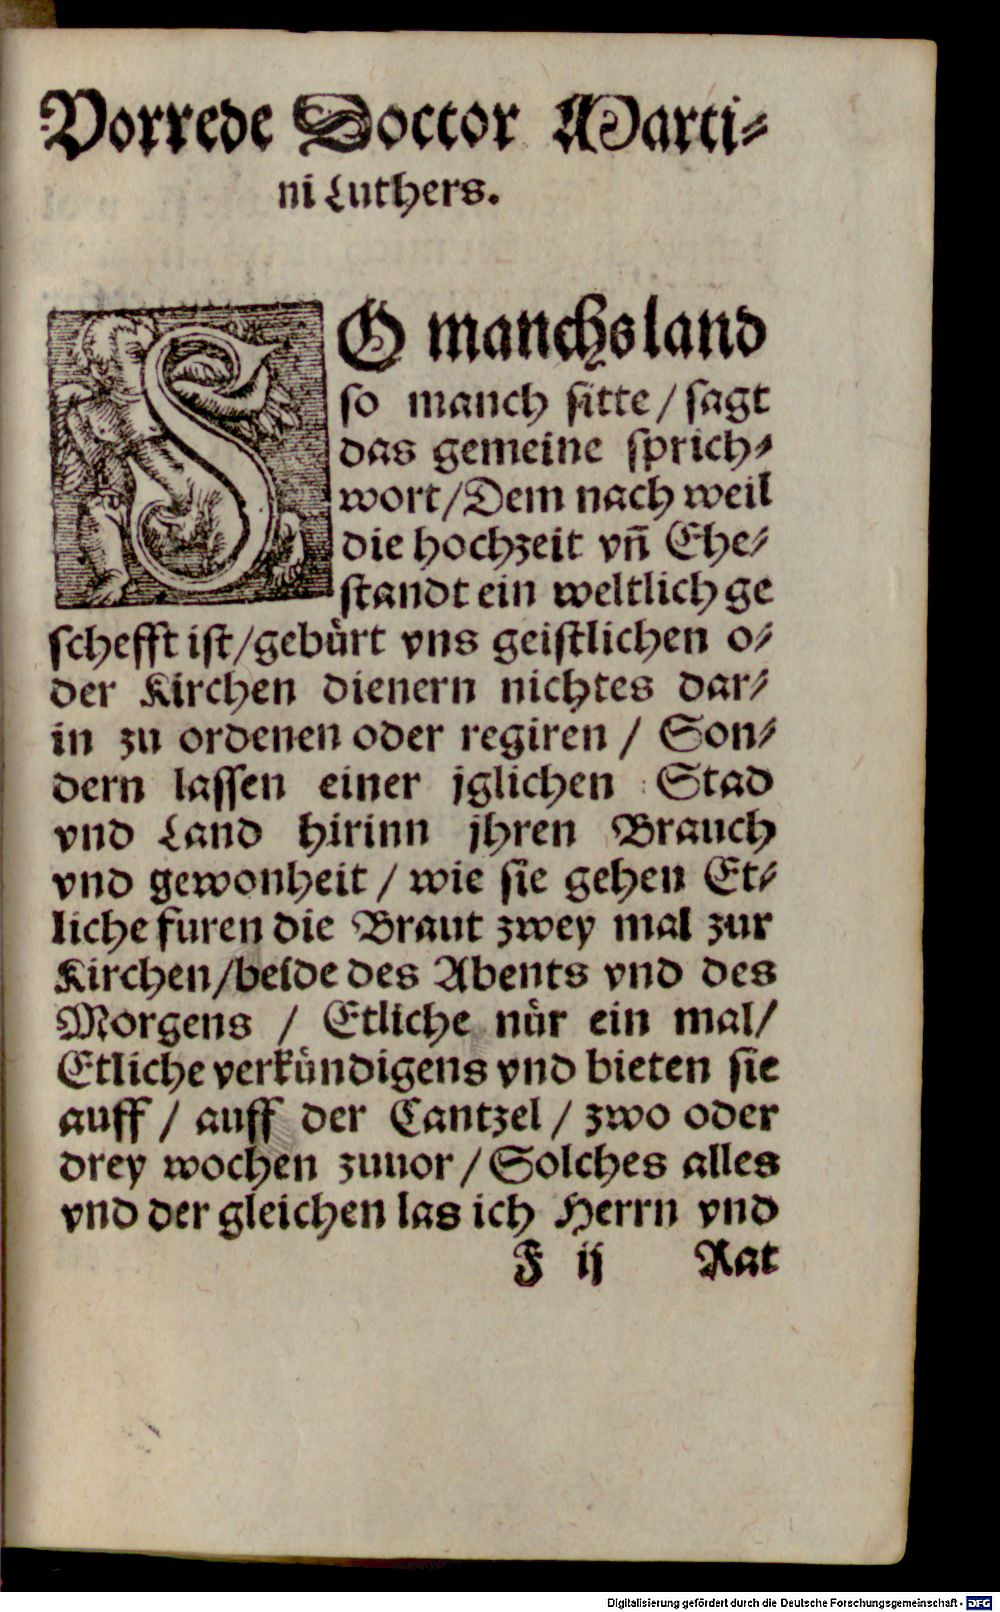 Vorrede Doctor Marti⸗
ni Luthers.
SO manchs land
so manch sitte / sagt
das gemeine sprich⸗
wort / Dem nach weil
die hochzeit vñ Ehe⸗
standt ein weltlich ge
schefft ist / gebůrt vns geistlichen o⸗
der Kirchen dienern nichtes dar⸗
in zu ordenen oder regiren / Son⸗
dern lassen einer jglichen Stad
vnd Land hirinn jhren Brauch
vnd gewonheit / wie sie gehen Et⸗
liche furen die Braut zwey mal zur
Kirchen / beide des Abents vnd des
Morgens / Etliche nůr ein mal /
Etliche verkůndigens vnd bieten sie
auff / auff der Cantzel / zwo oder
drey wochen zuuor / Solches alles
vnd der gleichen las ich Herrn vnd
F ij Rat
Digitalisierung gefördert durch die Deutsche Forschungsgemeinschaft - DFG